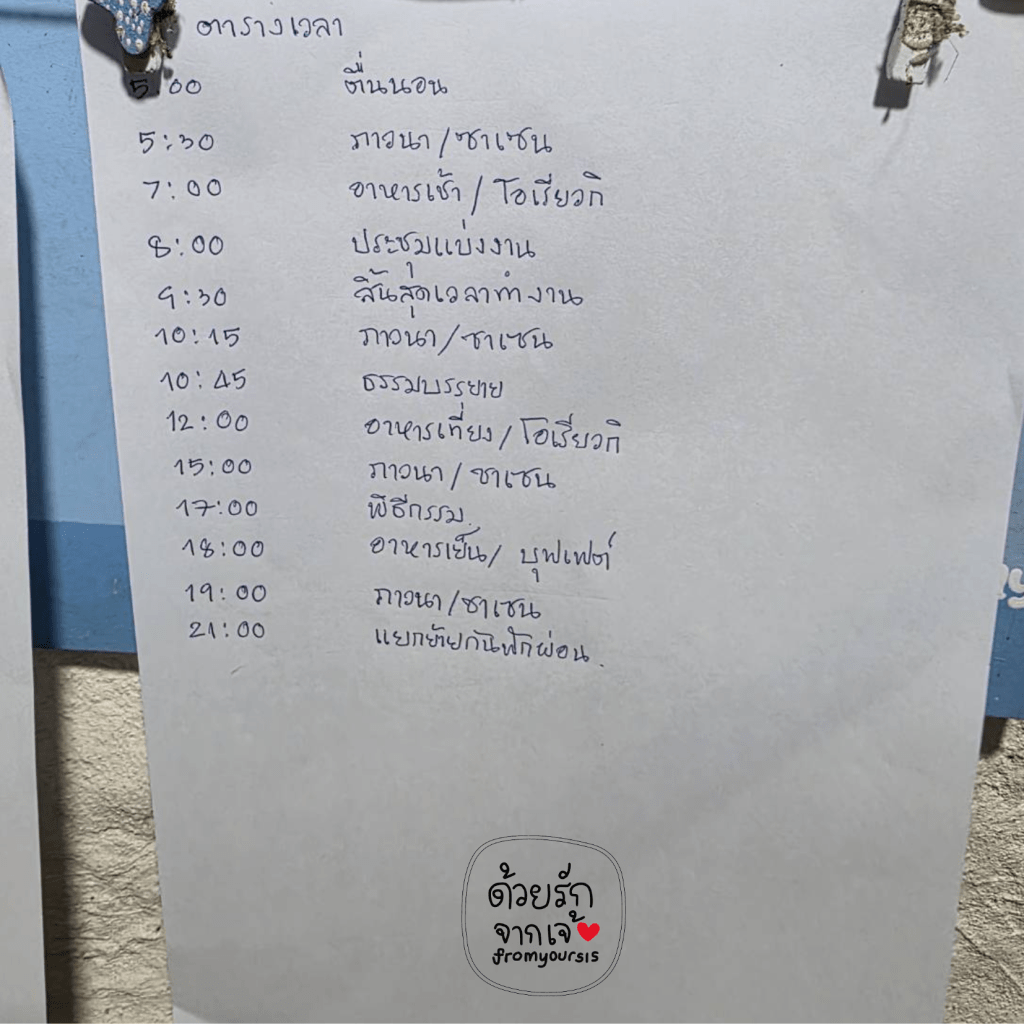 ตารางเวลา
5:00 ตื่นนอน
5:30 ภาวนา/ซาเซน
7:00 อาหารเช้า/โอเรียวกิ
8:00 ประชุมแบ่งงาน
9:30 สิ้นสุดเวลาทำงาน
10:15 ภาวนา/ซาเซน
10:45 ธรรมบรรยาย
12:00 อาหารเที่ยง/โอเรียวกิ
15:00 ภาวนา/ซาเซน
17:00 พิธีกรรม
18:00 อาหารเย็น/บุฟเฟต์
19:00 ภาวนา/ซาเซน
21:00 แยกย้ายกันพักผ่อน.
ด้วยรัก
จากเจ้
fromyoursis